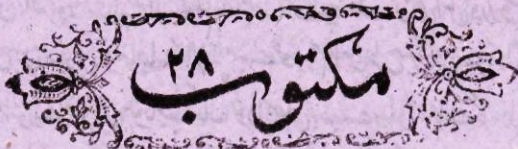 مکتوب ۲۸